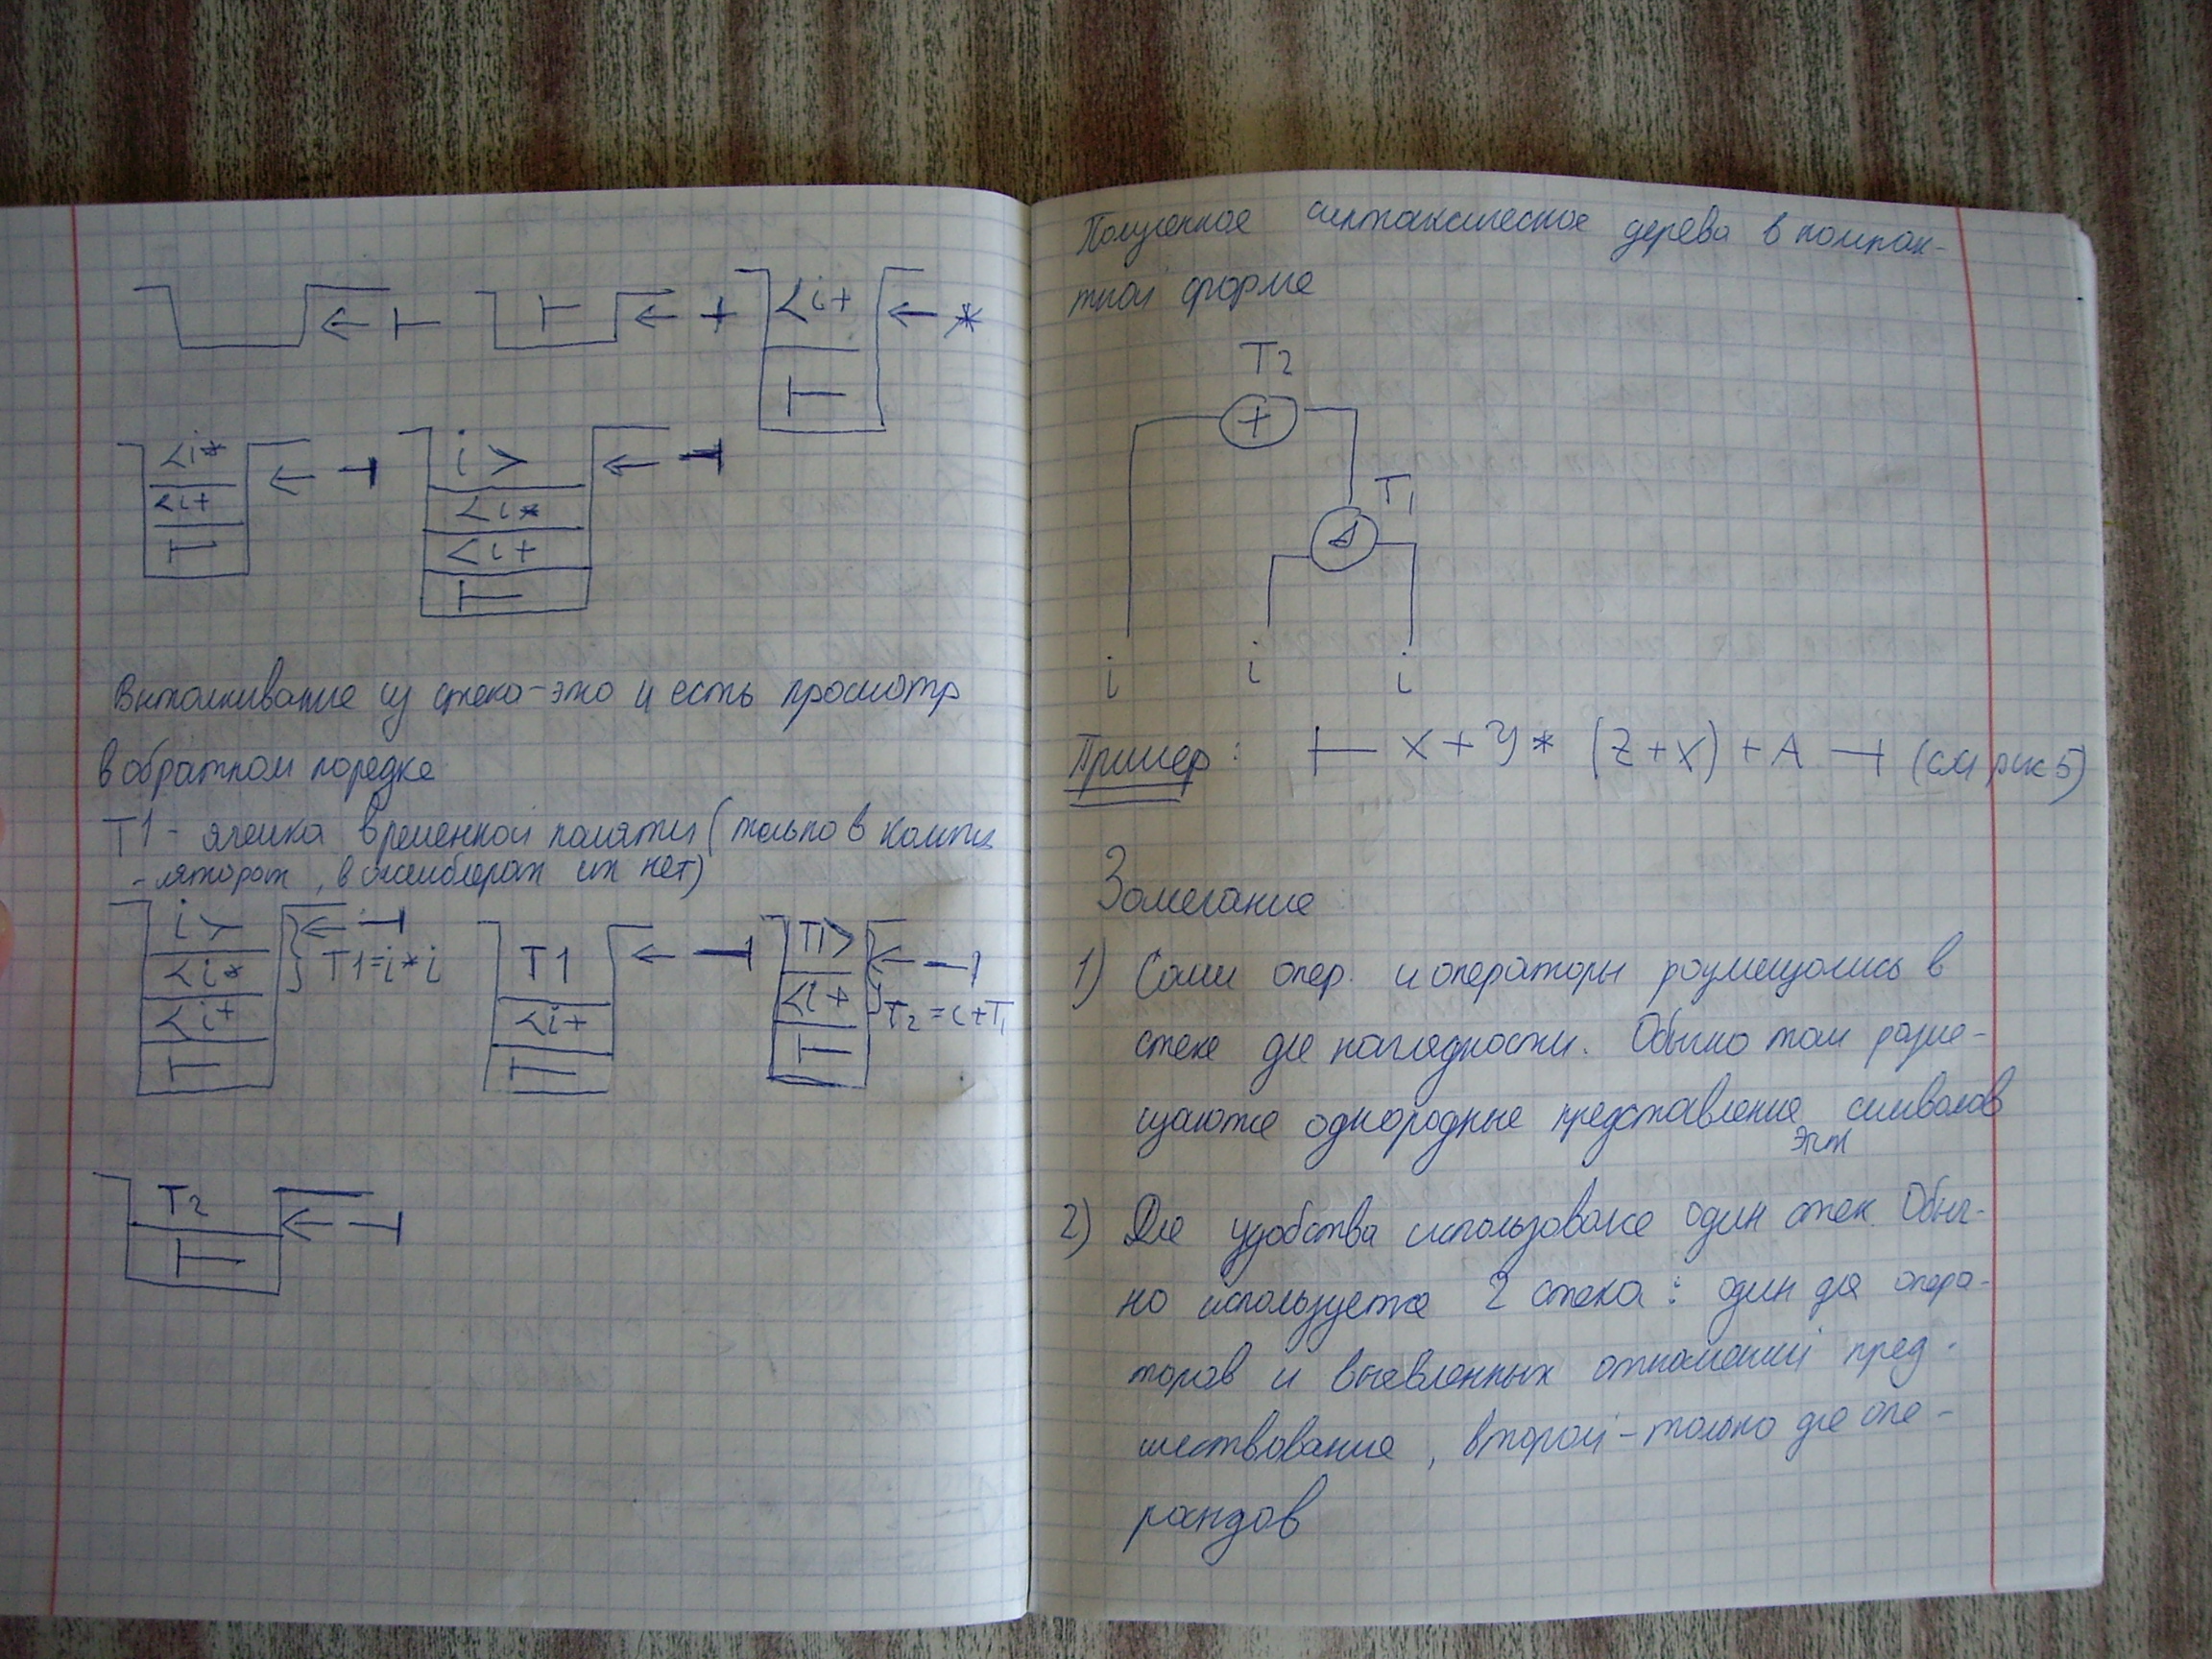 ← ⊢
⊢ ← +
<i+ ← *
⊢
<i* ← ⊣
<i+
⊢
i > ← ⊣
<i*
<i+
⊢
Выталкивание из стека - это и есть просмотр
в обратном порядке
T1 - ячейка временной памяти (только в компи
-ляторах, в ассемблерах их нет)
i > ← ⊣
<i* T1=i*i
<i+
⊢
T1 ← ⊣
<i+
⊢
T1> ← ⊣
<i+ T2 = i+T1
⊢
T2 ← ⊣
⊢
Полученное синтаксическое дерева в компак-
тной форме
T2
+
T1
i i i
Пример: ⊢ X+Y* (Z+X) +A ⊣ (см рис 5)
Замечание
1) Сами опер. и операторы размещались в
стеке для наглядности. Обычно там разме-
щаются однородные представления символов
этих
2) Для удобства использовался один стек. Обыч-
но используется 2 стека: один для опера-
торов и выявленных отношений пред-
шествования, второй - только для опе-
рандов